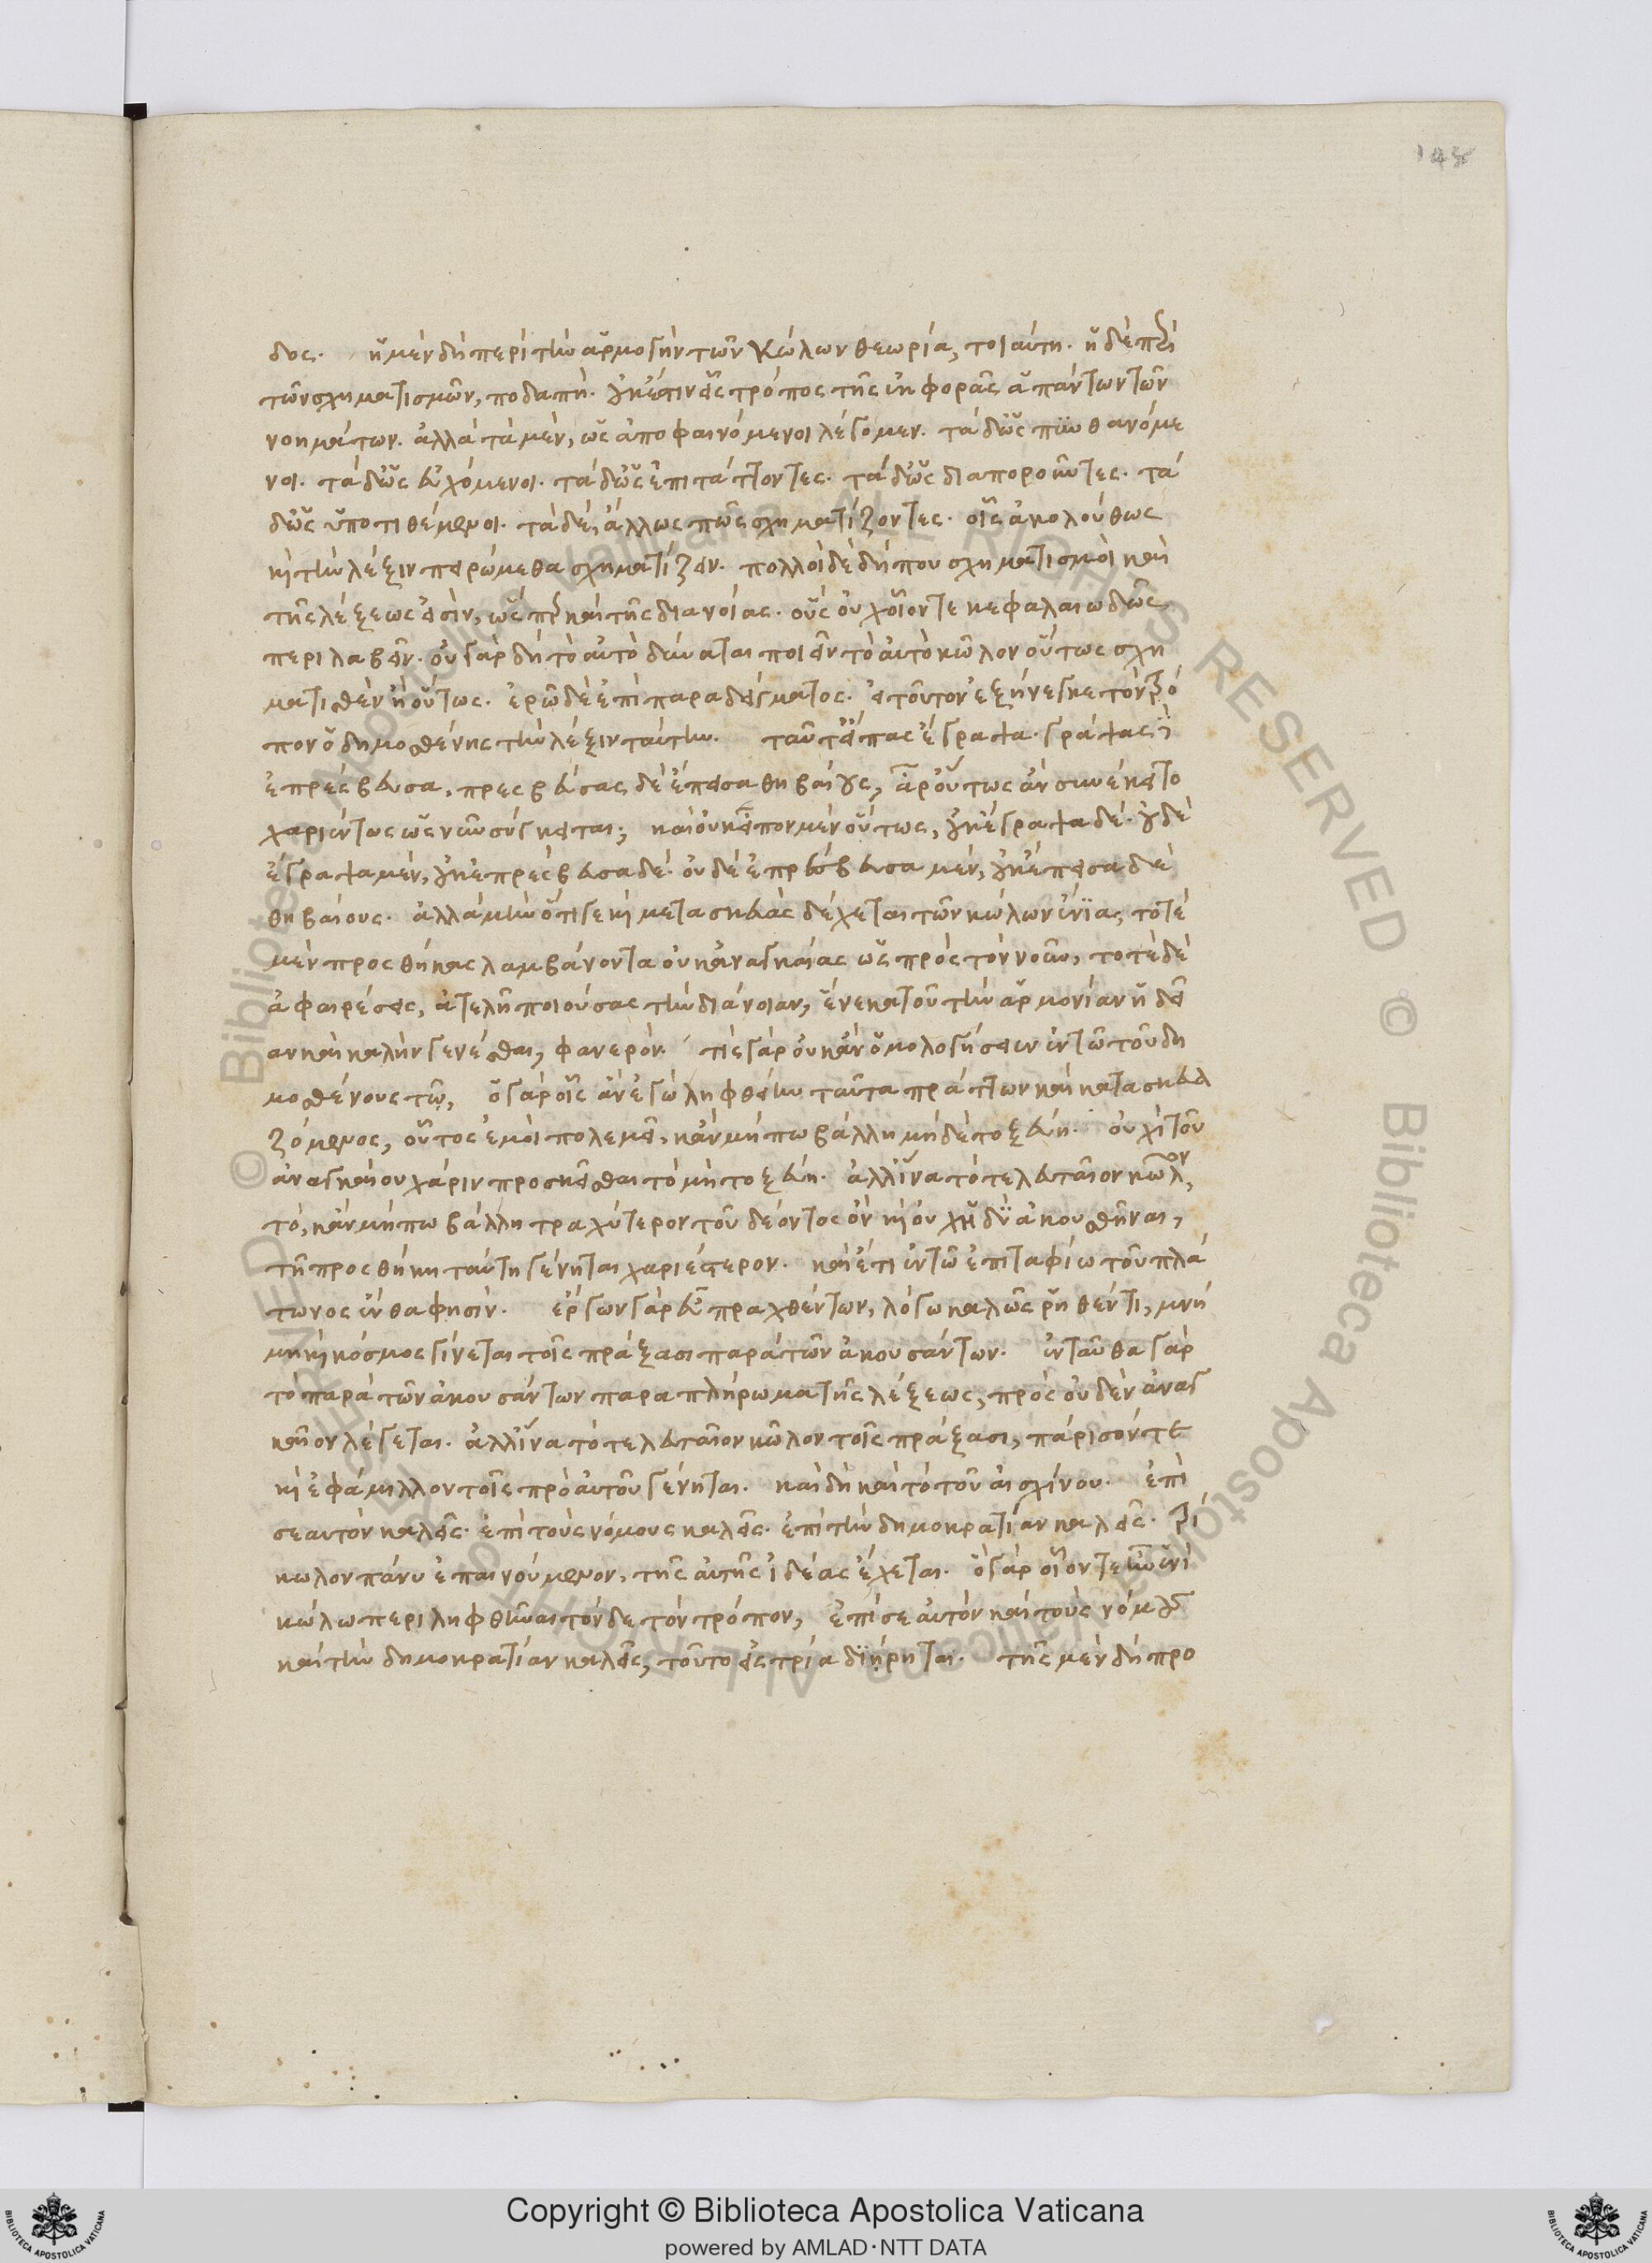 148
δος. ἡ μὲν δὴ περὶ τὴν ἁρμογὴν τῶν κώλων θεωρία, τοιαύτη. ἡ δὲ περὶ
τῶν σχηματισμῶν, ποδαπή. οὐκ ἔστιν εἷς τρόπος τῆς ἐκφορᾶς ἁπάντων τῶν
νοημάτων. ἀλλὰ τὰ μὲν, ὡς ἀποφαινόμενοι λέγομεν. τὰ δ' ὡς πυνθανόμε
νοι. τὰ δ' ὡς εὐχόμενοι. τὰ δ' ὡς ἐπιτάττοντες. τὰ δ' ὡς διαποροῦντες. τὰ
δ' ὡς ὑποτιθέμενοι. τὰ δὲ, ἄλλως πως σχηματίζοντες. οἷς ἀκολούθως
καὶ τὴν λέξιν πειρώμεθα σχηματίζειν. πολλοὶ δὲ δήπου σχηματισμοὶ καὶ
τῆς λέξεως εἰσὶν, ὥσπερ καὶ τῆς διανοίας. οὓς οὐχ οἷόν τε κεφαλαιωδῶς
περιλαβεῖν. οὐ γὰρ δὴ τὸ αὐτὸ δύναται ποιεῖν τὸ αὐτὸ κῶλον οὕτως σχη
ματισθὲν ἢ οὕτως. ἐρῶ δὲ ἐπὶ παραδείγματος. εἰ τοῦτον ἐξήνεγκε τὸν τρό
πον ὁ δημοσθένης τὴν λέξιν ταύτην. ταῦτ' εἴπας ἔγραψα. γράψας δ'
ἐπρέσβευσα, πρεσβεύσας δὲ ἔπεισα θηβαίους, ἆρ' οὕτως ἂν συνέκειτο
χαριέντως ὡς νῦν σύγκειται; καὶ οὐκ εἶπον μὲν οὕτως, οὐκ ἔγραψα δέ. οὐδὲ
ἔγραψα μὲν, οὐκ ἐπρέσβευσα δέ. οὐδὲ ἐπρέσβευσα μὲν, οὐκ ἔπεισα δὲ
θηβαίους. ἀλλὰ μὴν ὅτι γε καὶ μετασκευὰς δέχεται τῶν κώλων ἔνια, τοτὲ
μὲν προσθήκας λαμβάνοντα οὐκ ἀναγκαίας ὡς πρὸς τὸν νοῦν, τοτὲ δὲ
ἀφαιρέσεις, ἀτελῆ ποιούσας τὴν διάνοιαν, ἕνεκα τοῦ τὴν ἁρμονίαν ἡδεῖ
αν καὶ καλὴν γενέσθαι, φανερόν. τίς γὰρ οὐκ ἂν ὁμολογήσειεν ἐν τῶ τοῦ δη
μοσθένους τῶ, ὁ γὰρ οἷς ἂν ἐγὼ ληφθείην ταῦτα πράττων καὶ κατασκευα
ζόμενος, οὗτος ἐμοὶ πολεμεῖ, κἂν μήπω βάλλη μηδὲ τοξεύη. οὐχὶ τοῦ
ἀναγκαίου χάριν προσκεῖσθαι τὸ μὴ τοξεύη. ἀλλ' ἵνα τὸ τελευταῖον κῶλον,
τὸ, κἂν μήπω βάλλη τραχύτερον τοῦ δέοντος ὂν καὶ οὐχ ἡδὺ ἀκουσθῆναι,
τῆ προσθήκη ταύτη γένηται χαριέστερον. καὶ ἔτι ἐν τῶ ἐπιταφίω τοῦ πλά
τωνος ἔνθα φησίν. ἔργων γὰρ εὖ πραχθέντων, λόγω καλῶς ῥηθέντι, μνή
μη καὶ κόσμος γίνεται τοῖς πράξασι παρὰ τῶν ἀκουσάντων. ἐνταῦθα γὰρ
τὸ παρὰ τῶν ἀκουσάντων παραπλήρωμα τῆς λέξεως, πρὸς οὐδὲν ἀναγ
καῖον λέγεται. ἀλλ' ἵνα τὸ τελευταῖον κῶλον τοῖς πράξασι, πάρισόν τε
καὶ ἐφάμιλλον τοῖς πρὸ αὐτοῦ γένηται. καὶ δὴ καὶ τὸ τοῦ αἰσχίνου. ἐπὶ
σεαυτὸν καλεῖς. ἐπὶ τοὺς νόμους καλεῖς. ἐπὶ τὴν δημοκρατίαν καλεῖς. τρί
κωλον πάνυ ἐπαινούμενον, τῆς αὐτῆς ἰδέας ἔχεται. ὁ γὰρ οἷόν τε ἦν ἑνὶ
κώλω περιληφθῆναι τόνδε τὸν τρόπον, ἐπὶ σεαυτὸν καὶ τοὺς νόμους
καὶ τὴν δημοκρατίαν καλεῖς, τοῦτο εἰς τρία διήρηται. τῆς μὲν δὴ προ
© Biblioteca Apostolica Vaticana ALL RIGHTS RESERVED
Copyright © Biblioteca Apostolica Vaticana
powered by AMLAD·NTT DATA
BIBLIOTECA APOSTOLICA VATICANA
BIBLIOTECA APOSTOLICA VATICANA